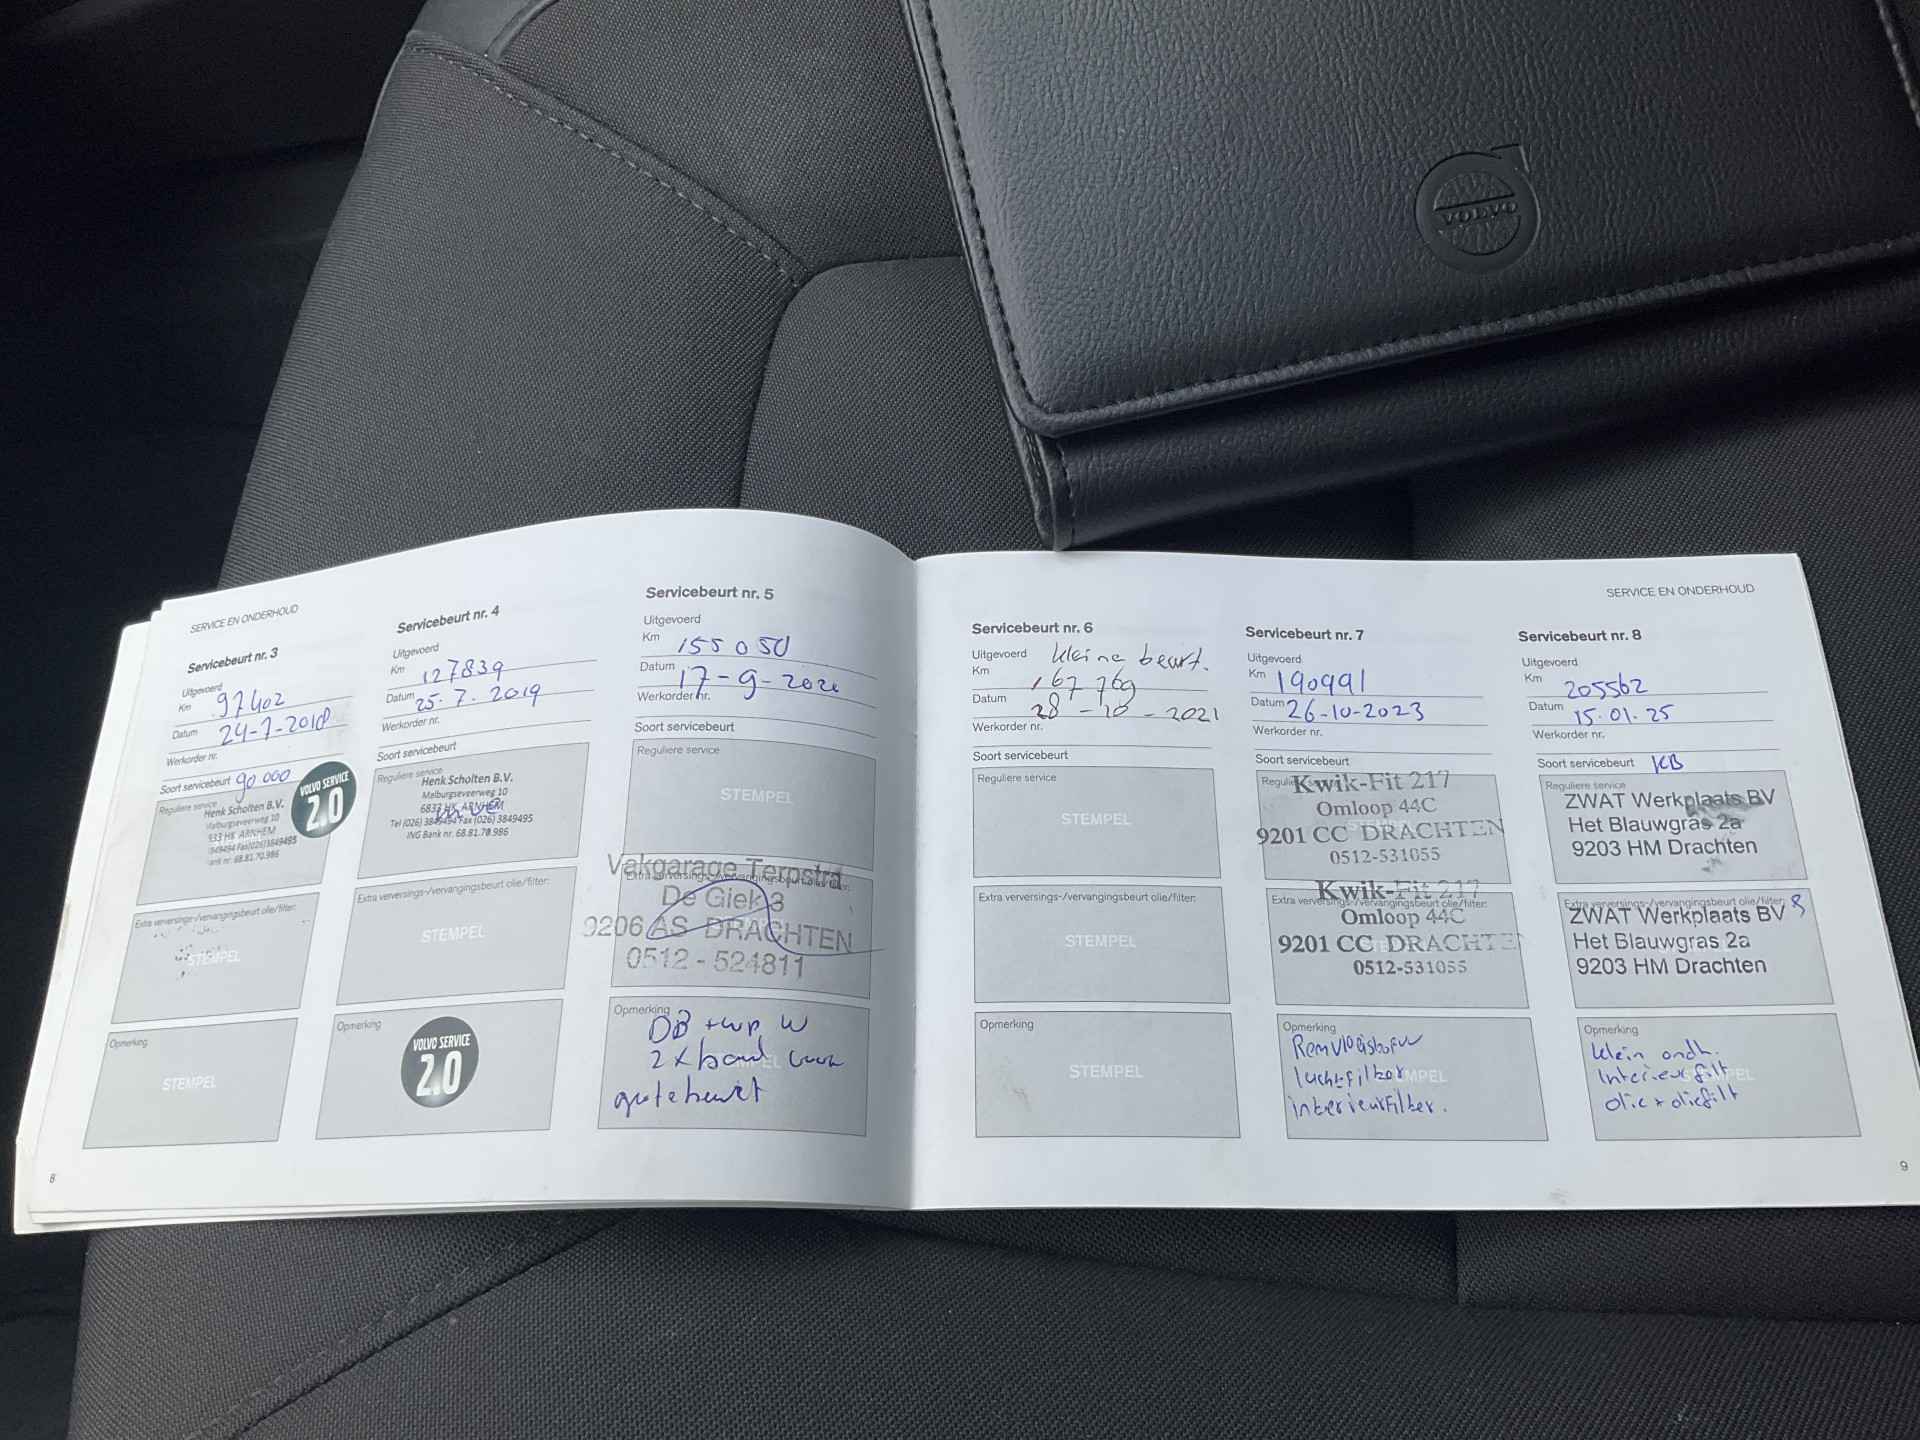 VOLVO
SERVICE EN ONDERHOUD
Servicebeurt nr. 3
Uitgevoerd
Km 97402
Datum 24-7-2018
Werkorder nr.
Soort servicebeurt 90 000
Reguliere service
Henk Scholten B.V.
Malburgseveerweg 10
833 HK ARNHEM
849494 Fax(026)3849495
ank nr. 68.81.70.986
VOLVO SERVICE
2.0
Extra verversings-/vervangingsbeurt olie/filter:
STEMPEL
Opmerking
STEMPEL
8
Servicebeurt nr. 4
Uitgevoerd
Km 127839
Datum 25.7.2019
Werkorder nr.
Soort servicebeurt
Reguliere service
Henk Scholten B.V.
Malburgseveerweg 10
6833 HK ARNHEM
Tel (026) 3849494 Fax (026) 3849495
ING Bank nr. 68.81.70.986
Extra verversings-/vervangingsbeurt olie/filter:
STEMPEL
Opmerking
VOLVO SERVICE
2.0
Servicebeurt nr. 5
Uitgevoerd
Km 155050
Datum 17-9-2020
Werkorder nr.
Soort servicebeurt
Reguliere service
STEMPEL
Vakgarage Terpstra
Extra verversings-/vervangingsbeurt olie/filter:
De Giek 3
9206 AS DRACHTEN
0512 - 524811
Opmerking
2 x band
STEMPEL
grote beurt
Servicebeurt nr. 6
Uitgevoerd kleine beurt.
Km 167769
Datum 28-10-2021
Werkorder nr.
Soort servicebeurt
Reguliere service
STEMPEL
Extra verversings-/vervangingsbeurt olie/filter:
STEMPEL
Opmerking
STEMPEL
Servicebeurt nr. 7
Uitgevoerd
Km 190991
Datum 26-10-2023
Werkorder nr.
Soort servicebeurt
Kwik-Fit 217
Omloop 44C
9201 CC DRACHTEN
0512-531055
Kwik-Fit 217
Extra verversings-/vervangingsbeurt olie/filter:
Omloop 44C
9201 CC DRACHTE
0512-531055
Opmerking
luchtfilter
interieurfilter.
SERVICE EN ONDERHOUD
Servicebeurt nr. 8
Uitgevoerd
Km 205562
Datum 15.01.25
Werkorder nr.
Soort servicebeurt KB
Reguliere service
ZWAT Werkplaats BV
Het Blauwgras 2a
9203 HM Drachten
Extra verversings-/vervangingsbeurt olie/filter:
ZWAT Werkplaats BV
Het Blauwgras 2a
9203 HM Drachten
Opmerking
klein ondh.
Interieurfilt
olie + oliefilt
9